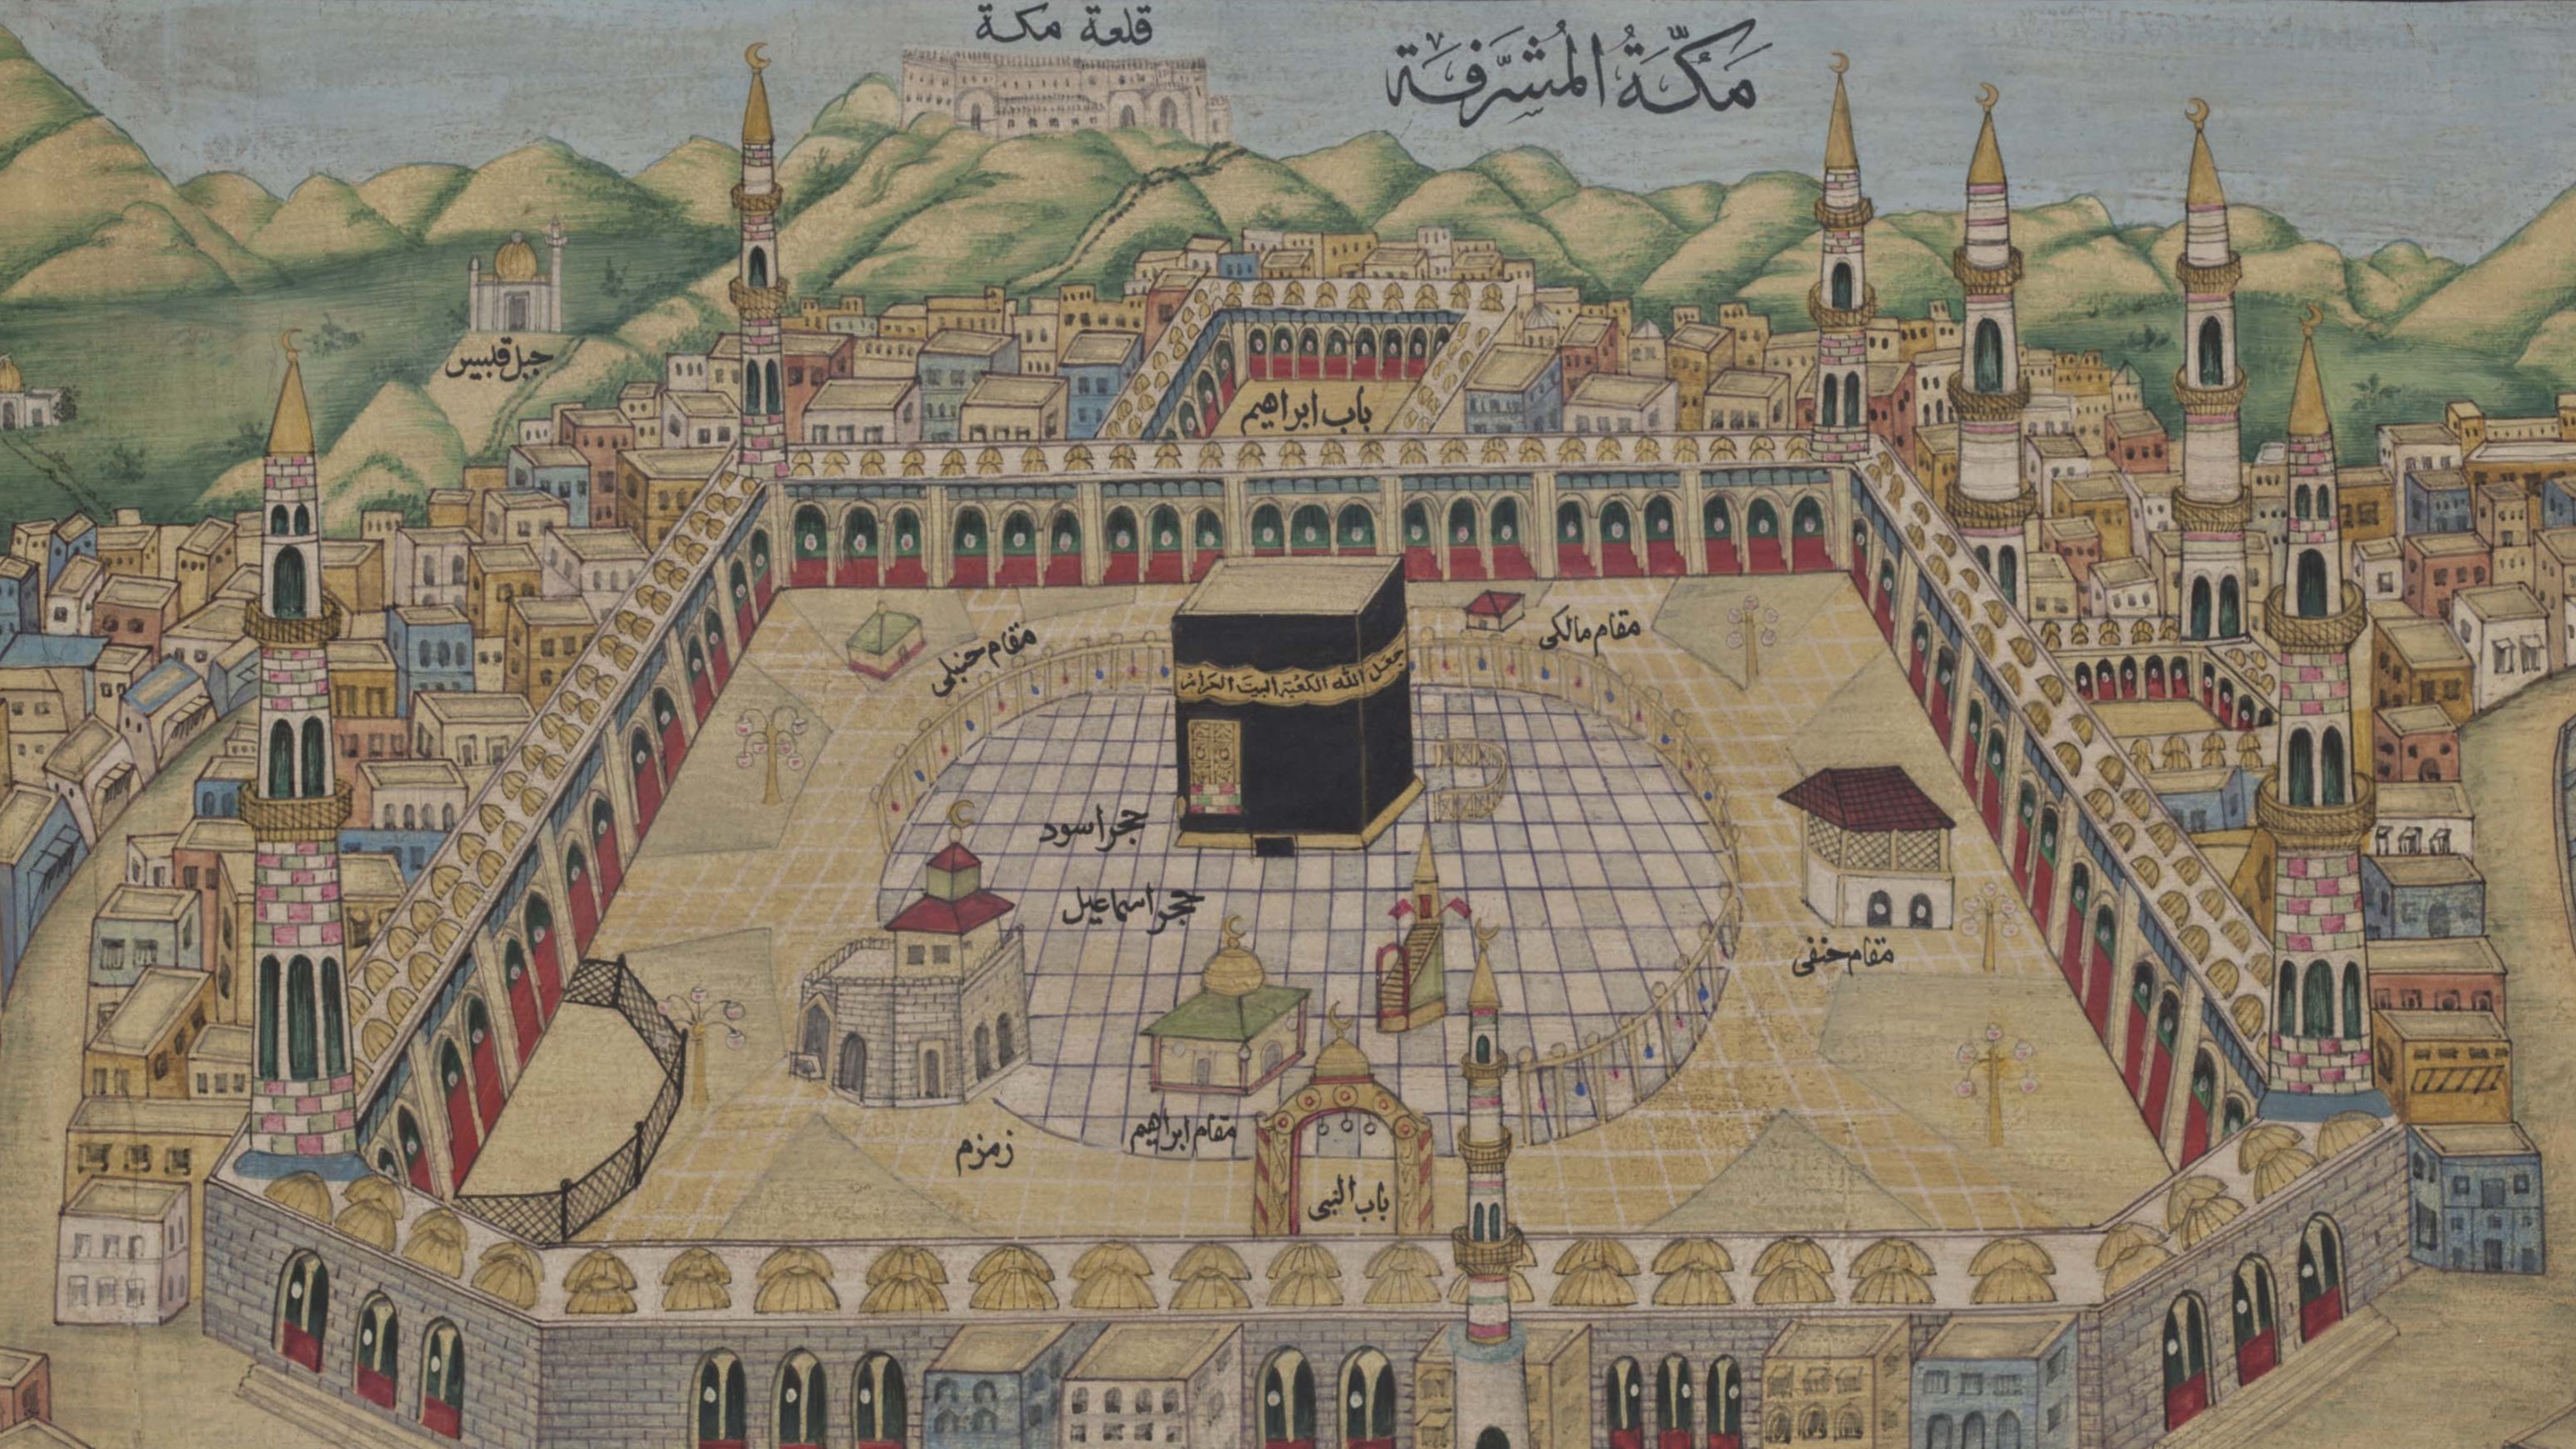 قلعة مكة
مَكَّةُ المُشَرَّفَة
جبل قلبيس
باب ابراهيم
مقام حنبلی
مقام مالكی
جعل الله الكعبة البيت الحرام
حجر اسود
حجر اسماعيل
مقام حنفی
زمزم
مقام ابراهيم
باب النبی